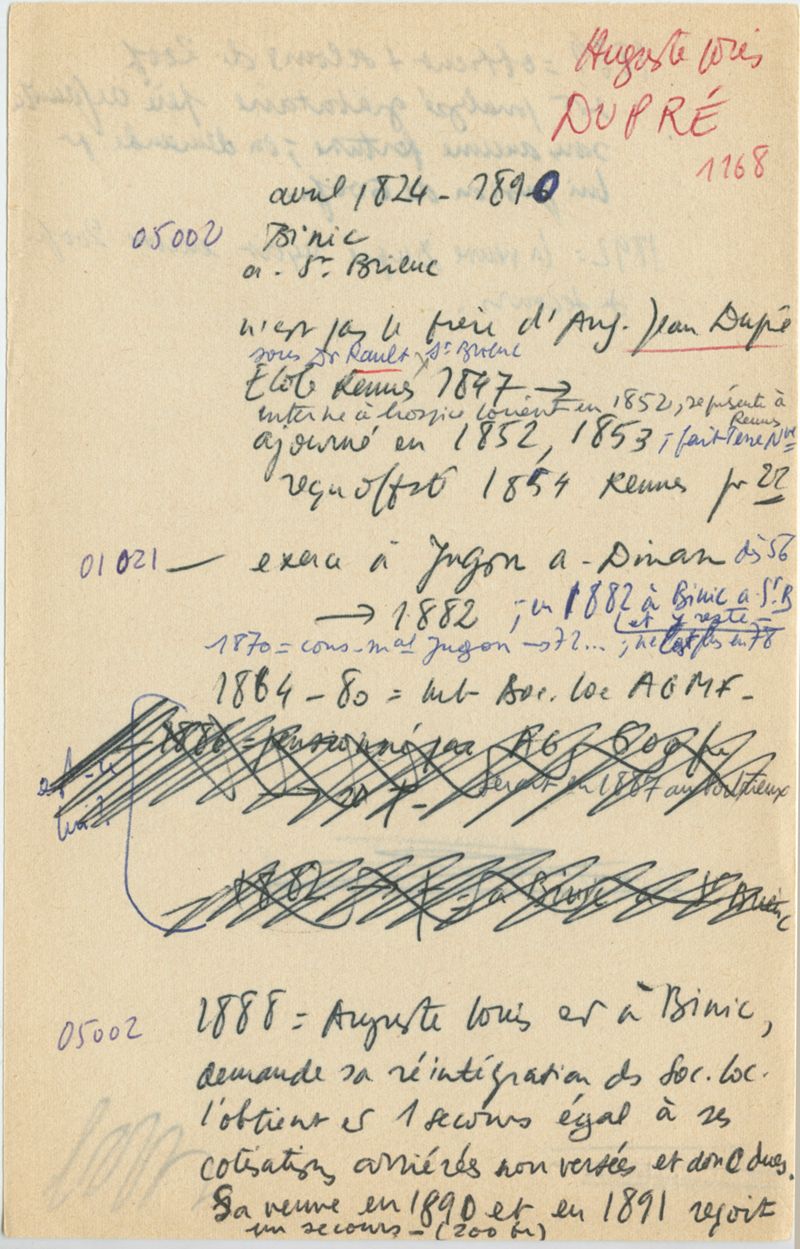 Auguste Louis
DUPRÉ
1168
avril 1824 - 1890
05002 Binic
a. St. Brieuc
n'est pas le frère d'Aug. Jean Dupré
sous Dr Rault, St Brieuc
École Rennes 1847 →
interne à hospice Lorient en 1852, représenté à Rennes
ajourné en 1852, 1853 ; fait Terre Nve
reçu off. 1854 Rennes pr 22
01021 — exerce à Jugon a - Dinan dès 56
→ 1882 ; en 1882 à Binic a. St. B
et y reste -
1870 = cons. mal Jugon → 72... ; ne l'est plus en 78
1864 - 80 = mb Soc. loc AGMF -
1886 = pensionné par AG, 600 fr
serait en 1887 au Portrieux
1882 → - à Binic a St Brieuc
05002 1888 = Auguste Louis est à Binic,
demande sa réintégration ds Soc. loc.
l'obtient et 1 secours égal à ses
cotisations arriérés non versées et donc dues.
Sa veuve en 1890 et en 1891 reçoit
un secours - (200 fr)